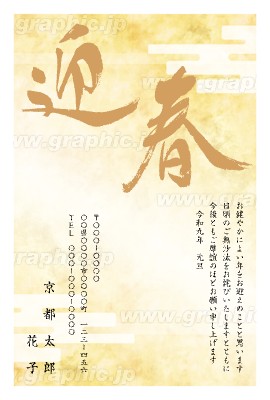 迎春
お健やかによい年をお迎えのことと思います
日頃のご無沙汰をお詫びいたしますとともに
今後ともご厚誼のほどお願い申し上げます
令和九年 元旦
〒〇〇〇-〇〇〇〇
〇〇県〇〇市〇〇〇町 一二三-四五六
TEL 〇〇〇-〇〇〇-〇〇〇〇
京都太郎
花子
www.graphic.jp
www.graphic.jp
www.graphic.jp
www.graphic.jp